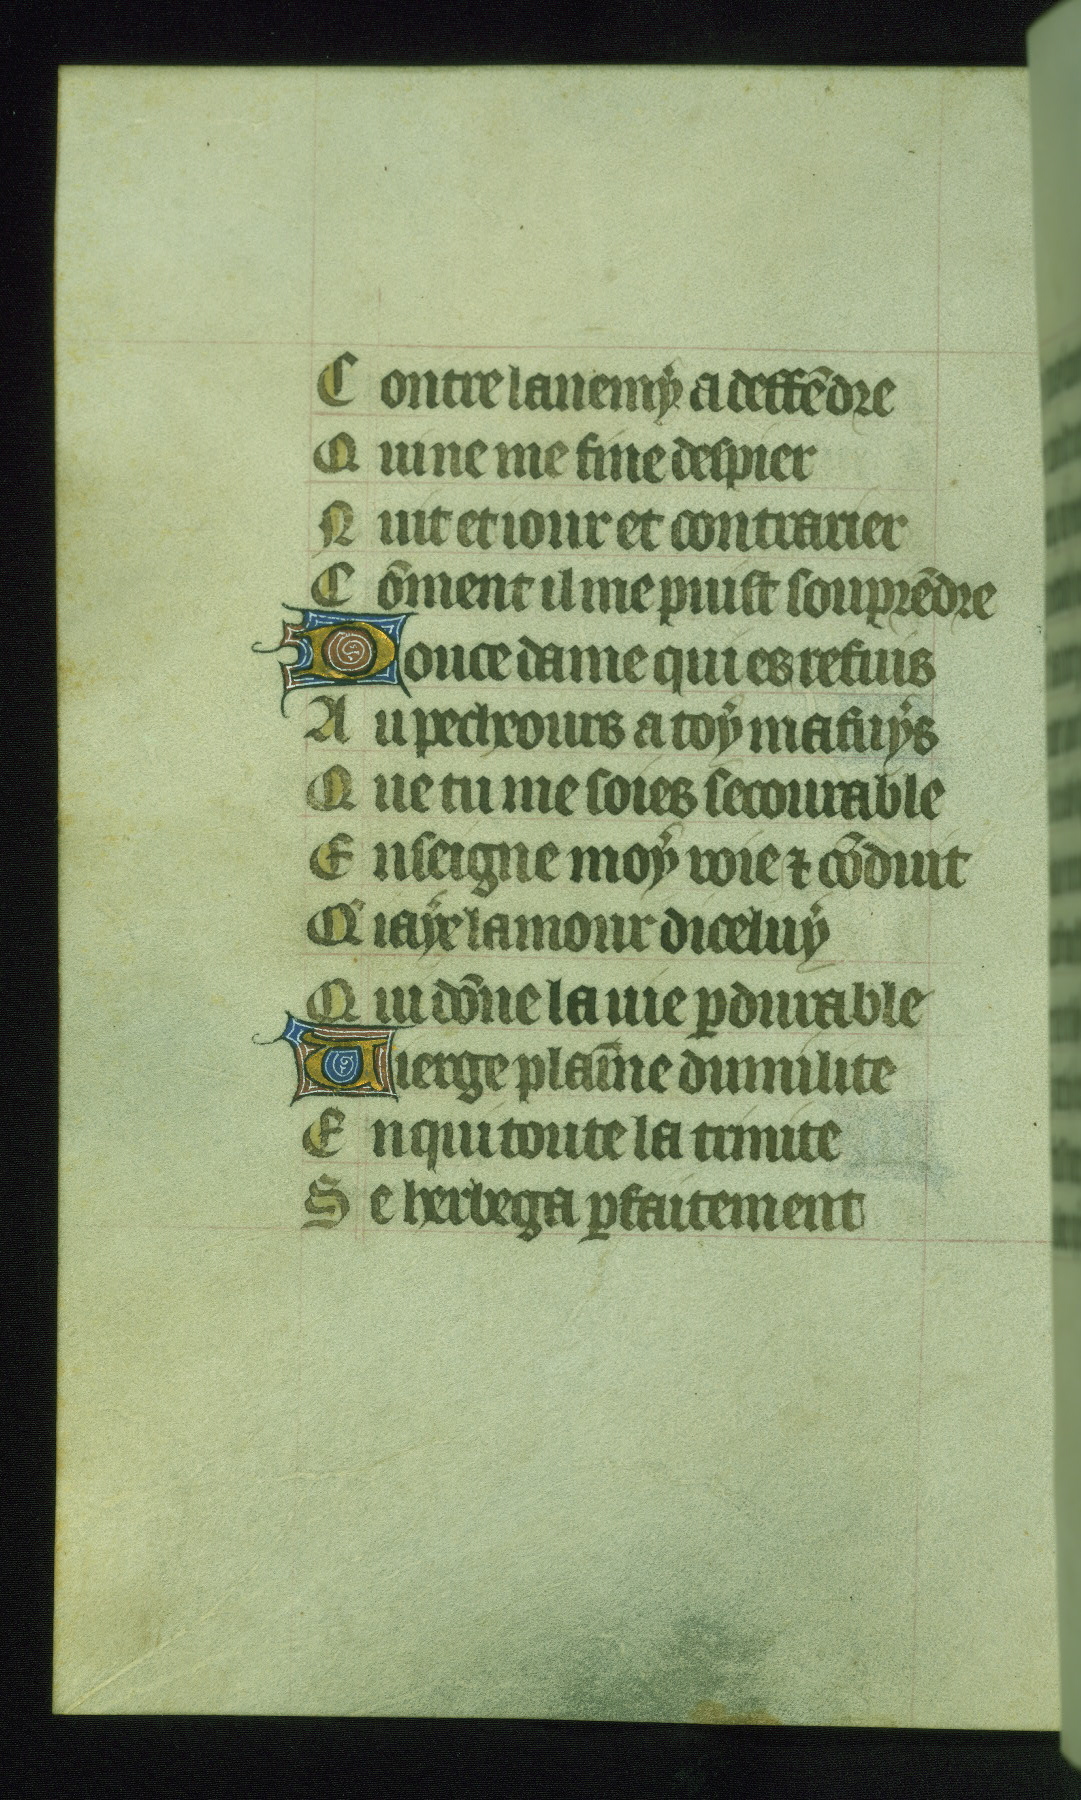 Contre lanemy a deffēdre
Qui ne me fine despier
Nuit et iour et contrarier
Cōment il me puist souprēdre
Douce dame qui es refuis
Au pecheours a toy mafuys
Que tu me soies secourable
Enseigne moy voie ⁊ cōduit
Q' iaye lamour diceluy
Qui dōne la uie ꝑdurable
Uierge plaīne dumilite
En qui toute la trinite
Se herbega ꝑfaitement